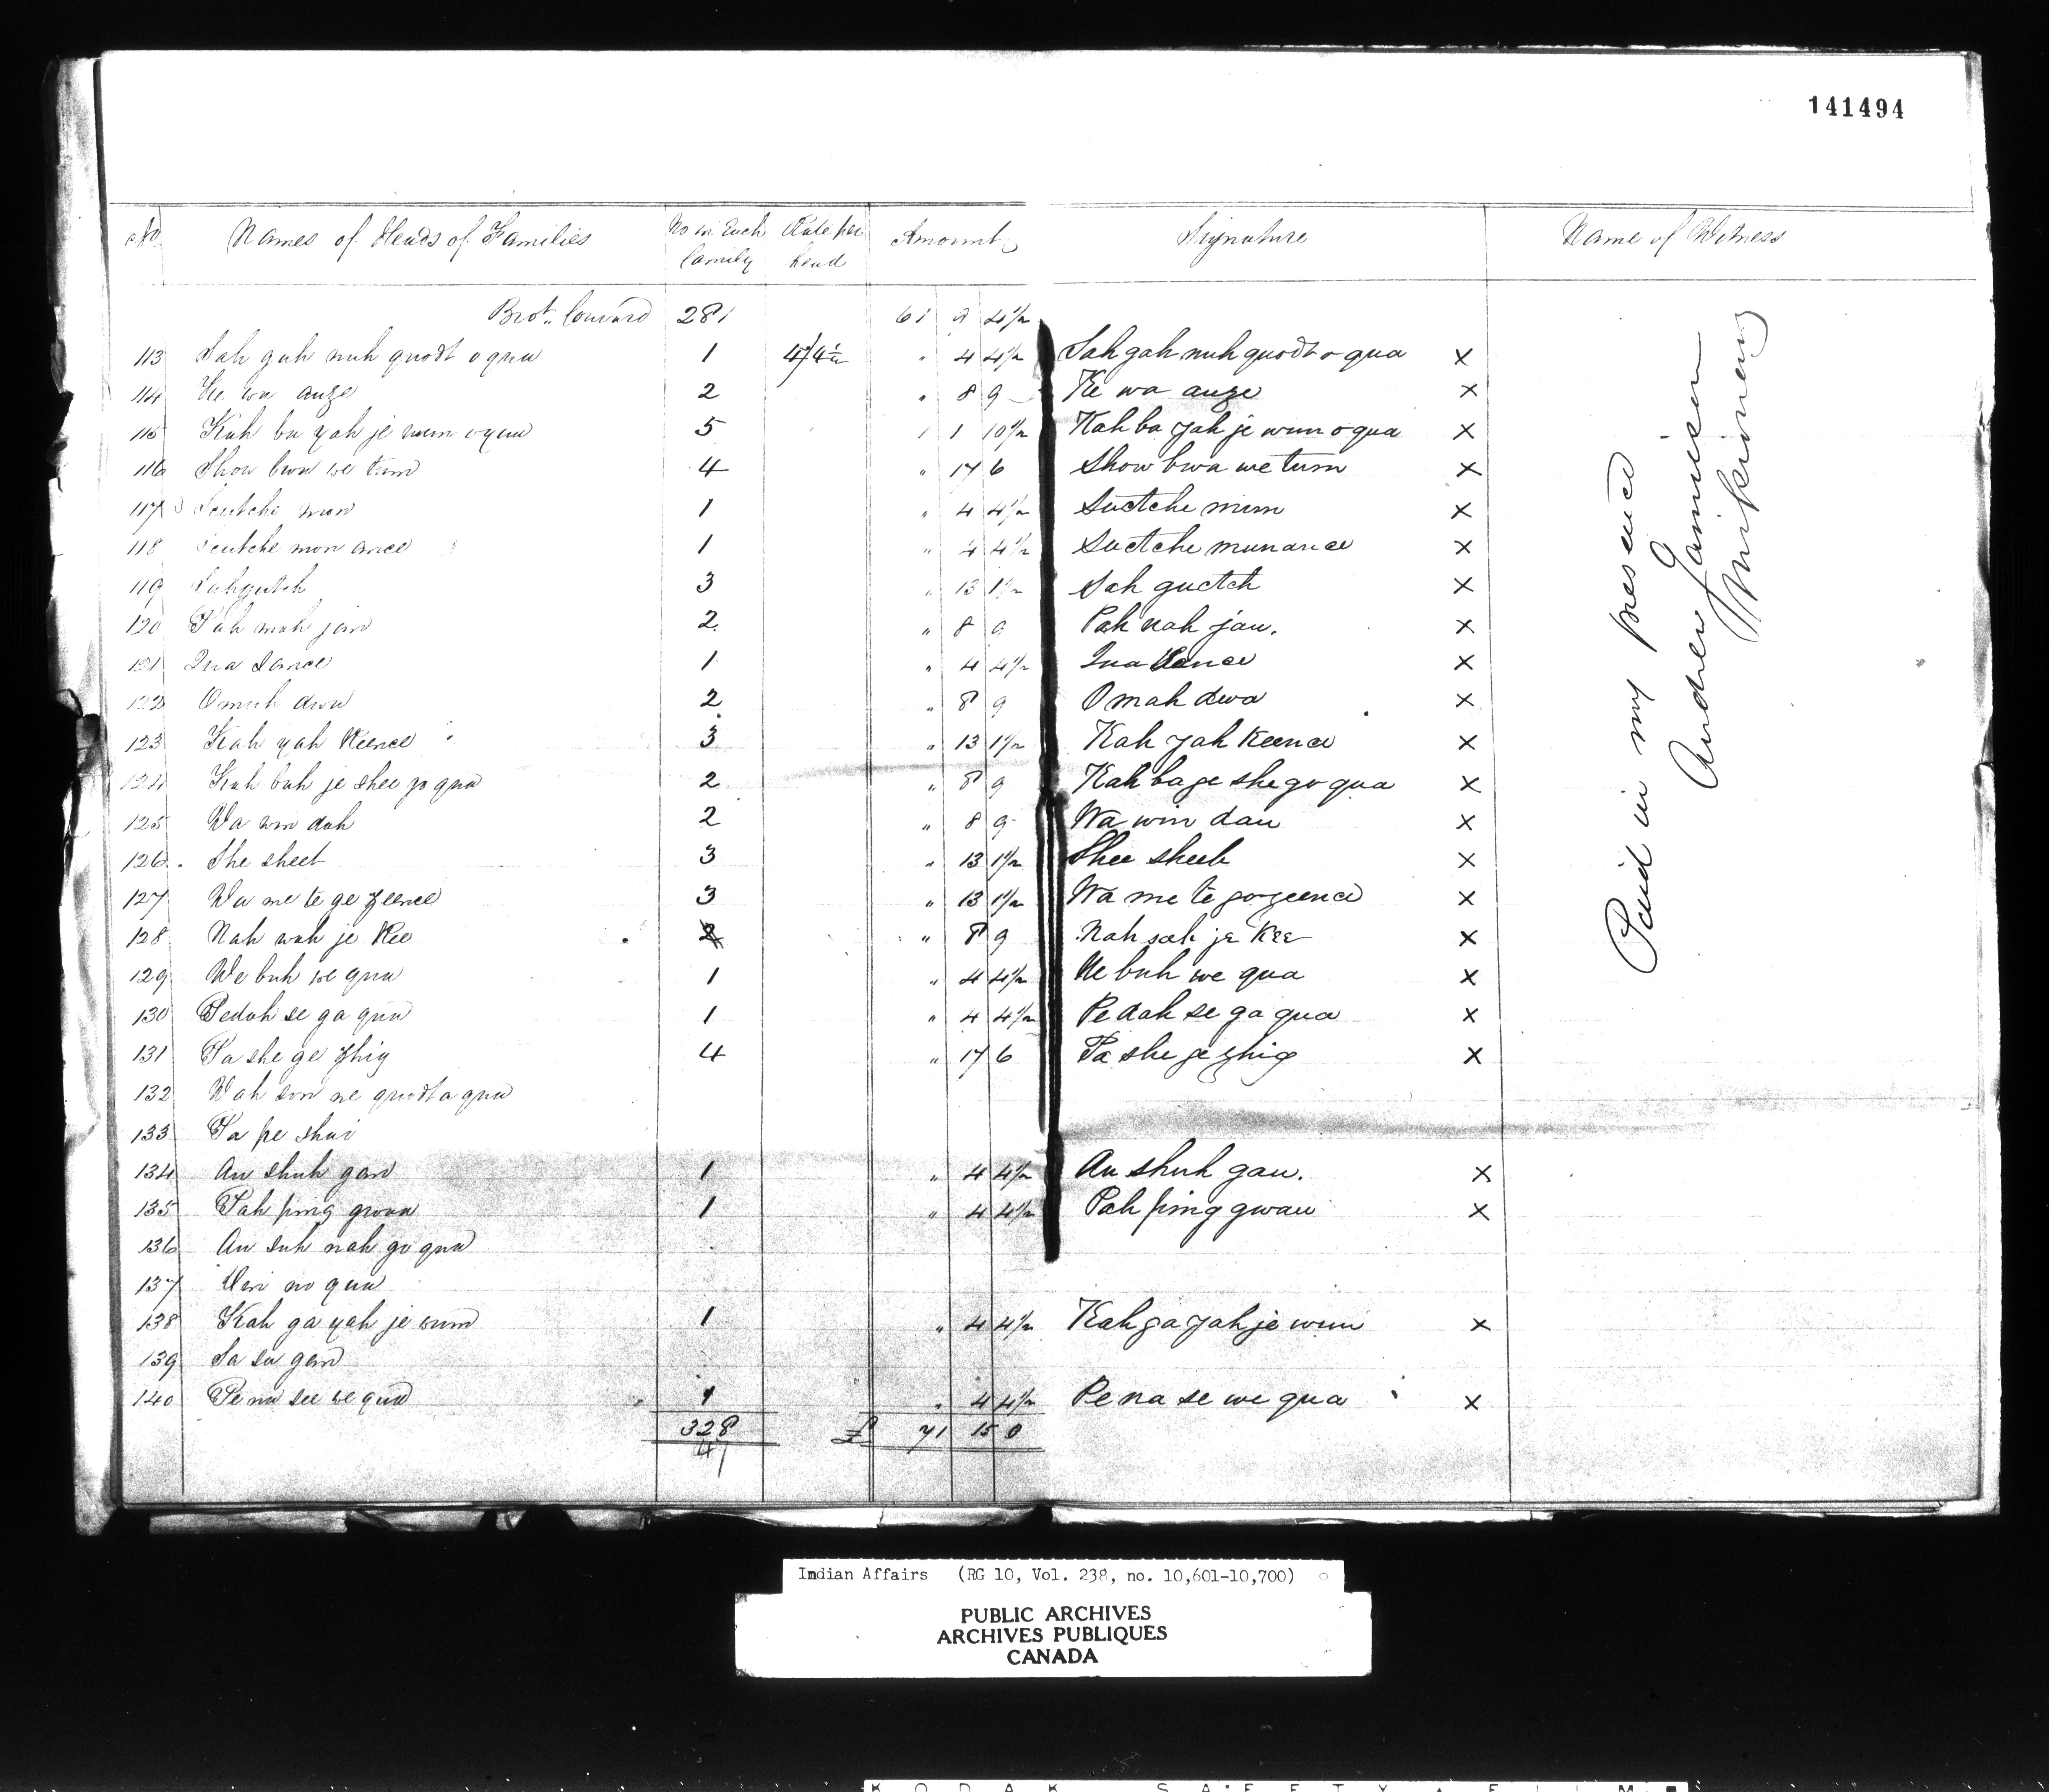 141494
No Names of Heads of Families No in Each family Rate per head Amount Signature Name of Witness
Brot. Forward 281 61 9 4½
113 Sah gah nuh quodt o qua 1 4/4½ " 4 4½ Sah gah nuh quodt o qua ×
114 Ke wa auze 2 " 8 9 Ke wa auze ×
115 Kah ba yah je wun o qua 5 1 1 10½ Kah ba yah je wun o qua ×
116 Show bwa we tum 4 " 17 6 Show bwa we tum ×
117 mun 1 " 4 4½ Suctche mun ×
118 mon ance 1 " 4 4½ Suctche munance ×
119 Sahgutch 3 " 13 1½ Sah guctch ×
120 Pah nah jau 2 " 8 9 Pah nah jau. ×
121 Qua dance 1 " 4 4½ ×
122 Omah dwa 2 " 8 9 Omah dwa ×
123 Kah yah Keence 3 " 13 1½ Kah yah Keence ×
124 Kah bah je shee go qua 2 " 8 9 Kah ba ge she go qua ×
125 Wa win dah 2 " 8 9 Wa win dau ×
126 She sheeb 3 " 13 1½ Shee sheeb ×
127 Wa me te ge zeence 3 " 13 1½ Wa me te go zeence ×
128 Nah wah je Kee 2 " 8 9 Nah wah je Kee ×
129 We buh we qua 1 " 4 4½ We buh we qua ×
130 Pedah se ga qua 1 " 4 4½ Pe dah se ga qua ×
131 Ta she ge zhig 4 " 17 6 Ta she ge zhig ×
132 Wah son ne quodt o qua
133 Ta pe shai
134 Au shuh gau 1 " 4 4½ Au shuh gau. ×
135 Pah ping gwau 1 " 4 4½ Pah ping gwau ×
136 Au suh nah go qua
137 no qua
138 Kah ga yah je wun 1 " 4 4½ Kah ga yah je wun ×
139 Sa su gau
140 Pe na see we qua 1 " 4 4½ Pe na se we qua ×
328 £ 71 15 0
Paid in my presence
Andrew Jamieson
Indian Affairs (RG 10, Vol. 238, no. 10,601-10,700)
PUBLIC ARCHIVES
ARCHIVES PUBLIQUES
CANADA
KODAK SAFETY FILM